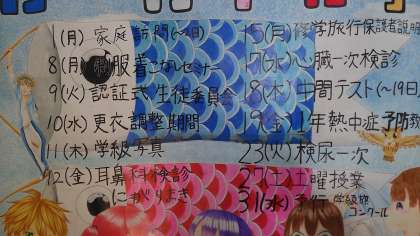 1(月)家庭訪問(~2日)
8(月)制服着こなしセミナー
9(火)認証式・生徒委員会
10(水)更衣調整期間
11(木)学級写真
12(金)耳鼻科検診
にぎりまき
15(月)修学旅行保護者説明
17(水)心臓一次検診
18(木)中間テスト(~19日
19(金)1年熱中症予防教
23(火)検尿一次
27(土)土曜授業
31(水)
コンクール